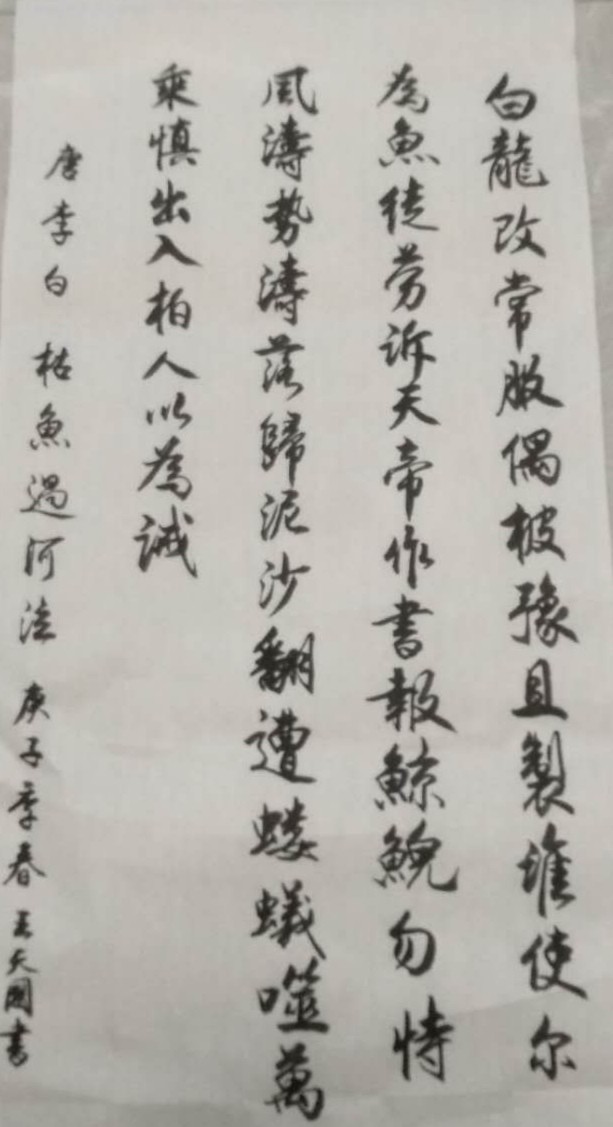 白龍改常服偶被豫且製谁使尔
為魚徒劳訴天帝作書報鯨鯢勿恃
風濤勢濤落歸泥沙翻遭蝼蟻噬萬
乘慎出入柏人以為誡
唐李白 枯魚過河泣 庚子季春 國書